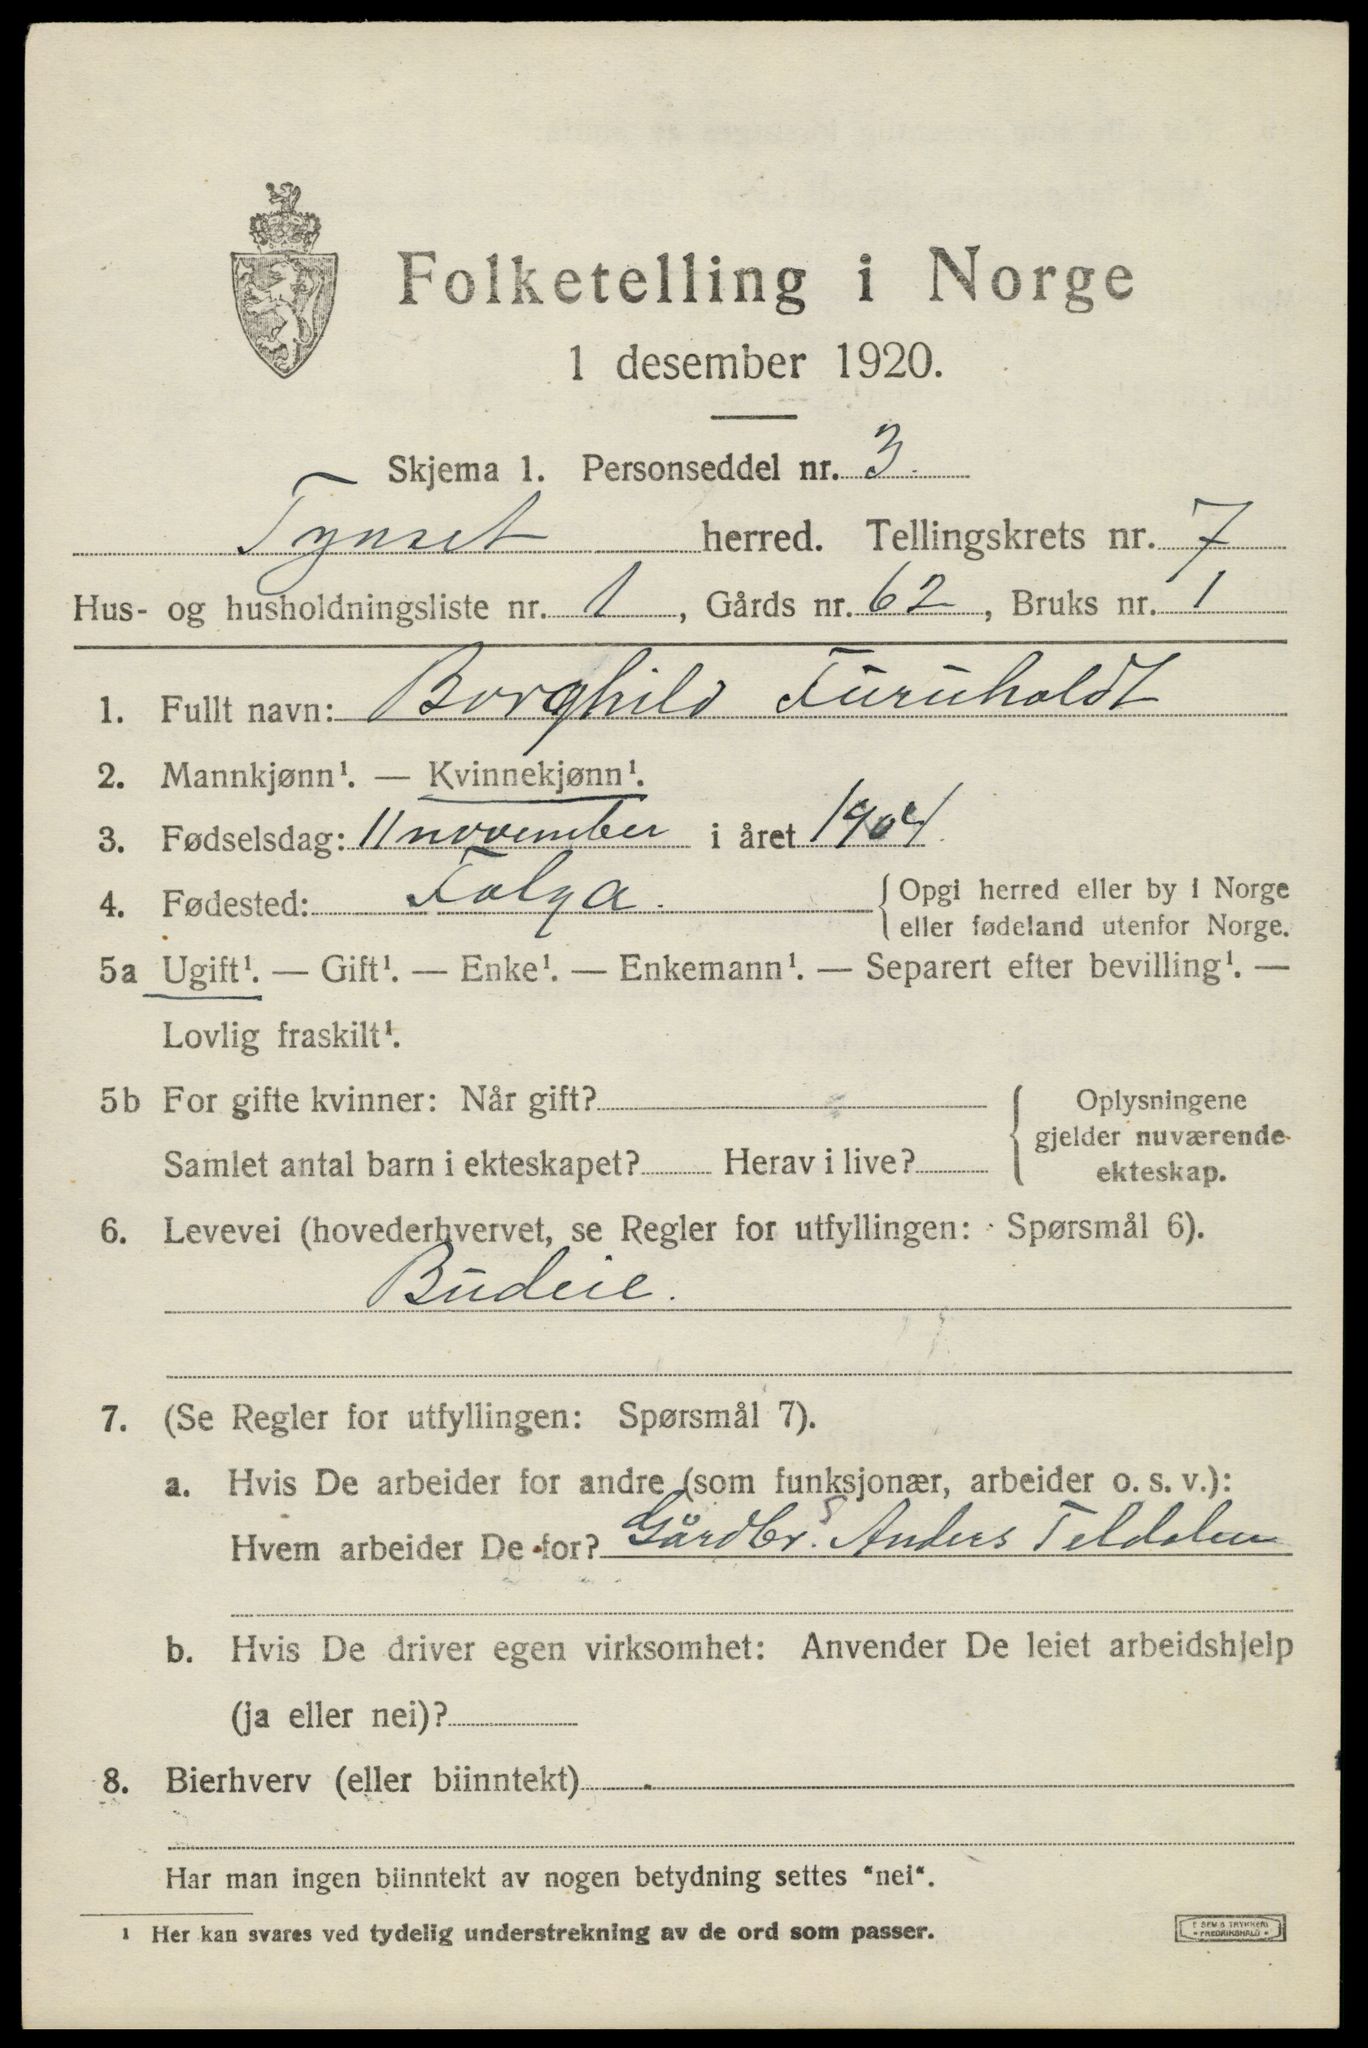 Folketelling i Norge
1 desember 1920.
Skjema 1. Personseddel nr. 3.
Tynset herred. Tellingskrets nr. 7
Hus- og husholdningsliste nr. 1, Gårds nr. 62, Bruks nr. 1
1. Fullt navn: Borghild Furuholdt
2. Mannkjønn¹. — Kvinnekjønn¹.
3. Fødselsdag: 11 november i året 1904.
4. Fødested: Tolga. { Opgi herred eller by i Norge
eller fødeland utenfor Norge.
5a Ugift¹. — Gift¹. — Enke¹. — Enkemann¹. — Separert efter bevilling¹. —
Lovlig fraskilt¹.
5b For gifte kvinner: Når gift? { Oplysningene
gjelder nuværende
Samlet antal barn i ekteskapet? Herav i live?
ekteskap.
6. Levevei (hovederhvervet, se Regler for utfyllingen: Spørsmål 6).
Budeie.
7. (Se Regler for utfyllingen: Spørsmål 7).
a. Hvis De arbeider for andre (som funksjonær, arbeider o. s. v.):
Hvem arbeider De for? Gårdbr. Anders Teldalen
b. Hvis De driver egen virksomhet: Anvender De leiet arbeidshjelp
(ja eller nei)?
8. Bierhverv (eller biinntekt)
Har man ingen biinntekt av nogen betydning settes "nei".
¹ Her kan svares ved tydelig understrekning av de ord som passer.
E SEM'S TRYKKERI
FREDRIKSHALD